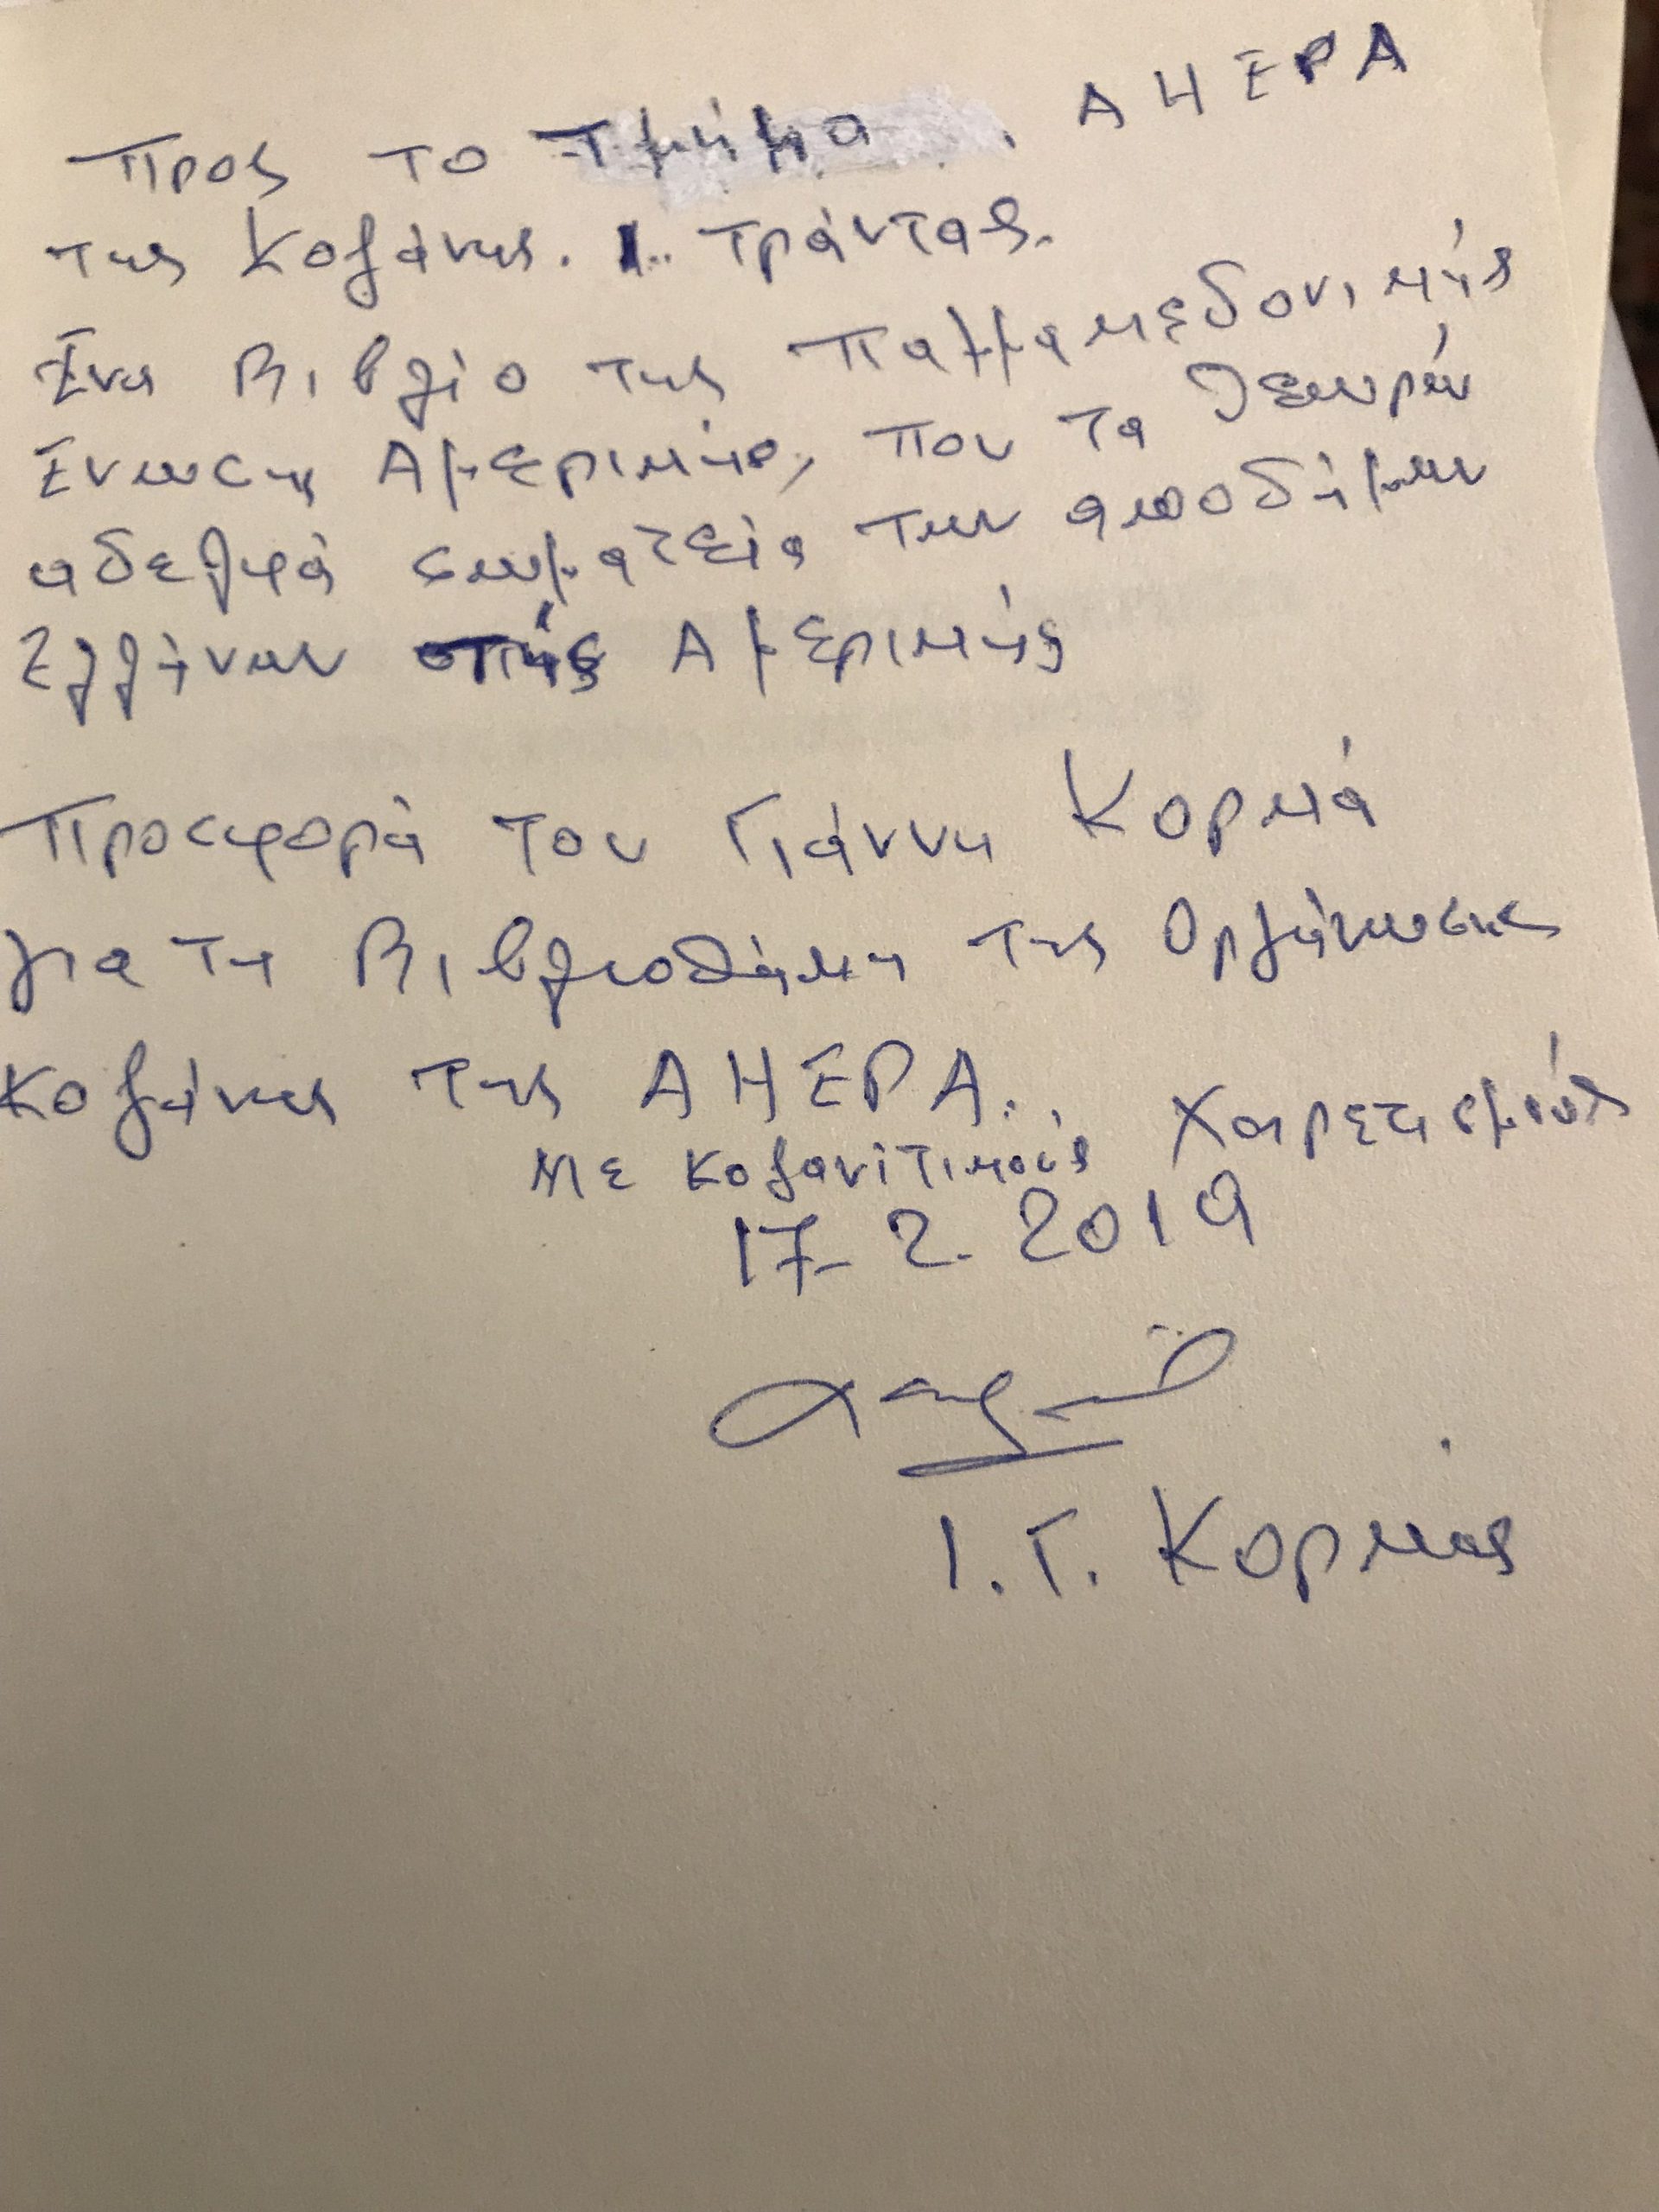 Προς το Τμήμα . ΑΗΕΡΑ
της Κοζάνης. Ι. Τράντας.
Ένα Βιβλίο της Παμμακεδονικής
Ένωσης Αμερικής, που τα θεωρώ
αδελφά σωματεία των αποδήμων
Ελλήνων στής Αμερικής
Προσφορά του Γιάννη Κορκά
για τη Βιβλιοθήκη της Οργάνωσης
Κοζάνης της ΑΗΕΡΑ..
Με Κοζανίτικούς Χαιρετισμούς
17-2.2019
Ι.Γ. Κορκάς